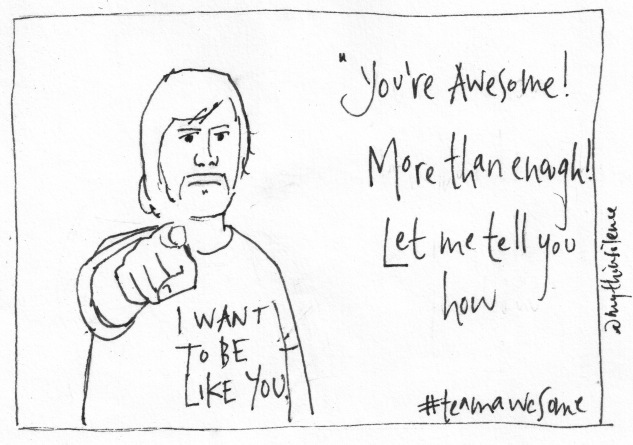 "You're Awesome!
More than enough!
Let me tell you
how
I WANT
TO BE
LIKE YOU.
#teamawesome